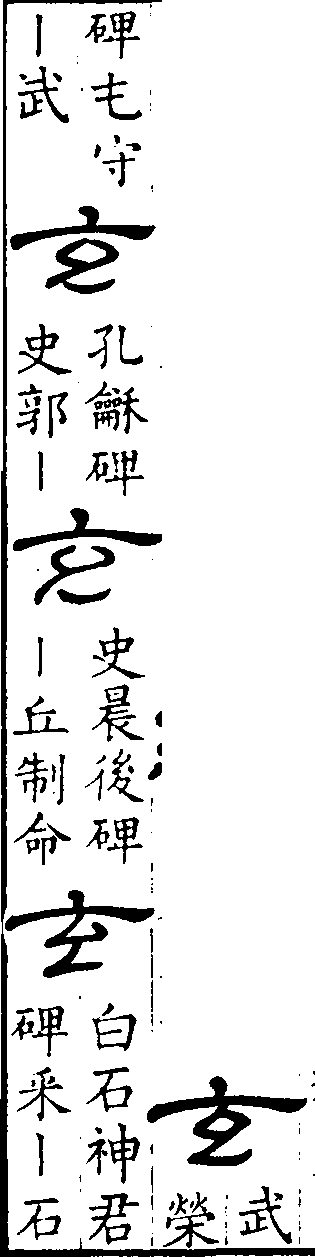 玄
武
榮
碑乇守
丨武
玄
孔龢碑
史郭丨
玄
史晨後碑
丨丘制命
玄
白石神君
碑采丨石